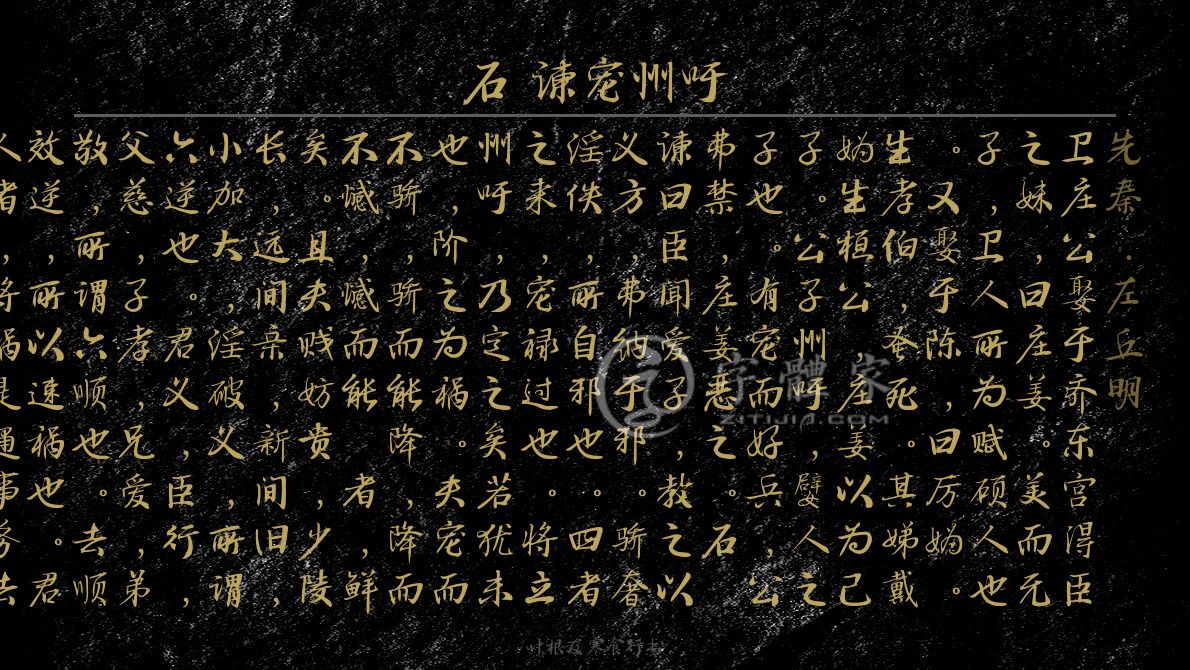 石 谏宠州吁
先秦·左丘明
卫庄公娶于齐东宫得臣
之妹,曰庄姜。美而无
子,卫人所为赋硕人也
。又娶于陈,曰厉妫。
生孝伯,蚤死。其娣戴
妫生桓公,庄姜以为己
子。公子州吁,嬖人之
子也。有宠而好兵,公
弗禁,庄姜恶之。石
谏曰 臣闻爱子,教之以
义方,弗纳于邪。骄奢
淫佚,所自邪也。四者
之来,宠禄过也。将立
州吁,乃定之矣 若犹未
也,阶之为祸。夫宠而
不骄,骄而能降,降而
不憾,憾而能 者,鲜
矣。且夫贱妨贵,少陵
长,远间亲,新间旧,
小加大,淫破义,所谓
六逆也。君义,臣行,
父慈,子孝,兄爱,弟
敬,所谓六顺也。去顺
效逆,所以速祸也。君
字體家
ZITIJIA.COM
叶根友寒食行书